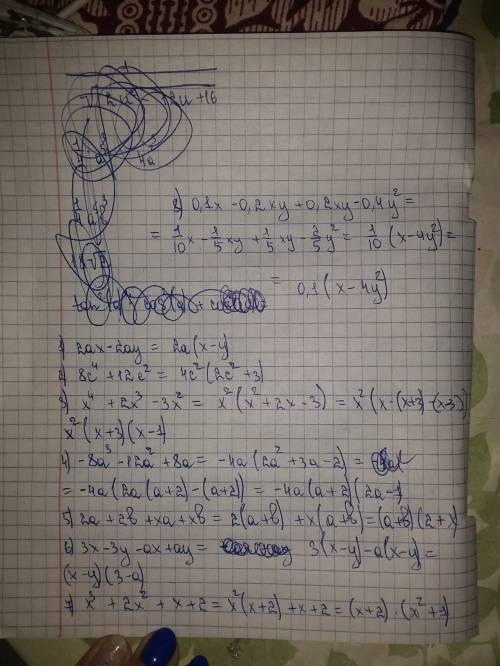 2u² - 12u + 16
4a²
8) 0,1x - 0,2xy + 0,2xy - 0,4y² =
= 1/10 x - 1/5 xy + 1/5 xy - 2/5 y² = 1/10 (x - 4y²) =
= 0,1 (x - 4y²)
1) 2ax - 2ay = 2a(x-y)
2) 8c⁴ + 12c² = 4c²(2c² + 3)
3) x⁴ + 2x³ - 3x² = x²(x² + 2x - 3) = x²(x·(x+3) - (x+3))
x²(x+3)(x-1)
4) -8a³ - 12a² + 8a = -4a(2a² + 3a - 2) =
= -4a(2a(a+2) - (a+2)) = -4a(a+2)(2a-1)
5) 2a + 2b + xa + xb = 2(a+b) + x(a+b) = (a+b)(2+x)
6) 3x - 3y - ax + ay = 3(x-y) - a(x-y) =
(x-y)(3-a)
7) x³ + 2x² + x + 2 = x²(x+2) + x + 2 = (x+2)·(x²+1)